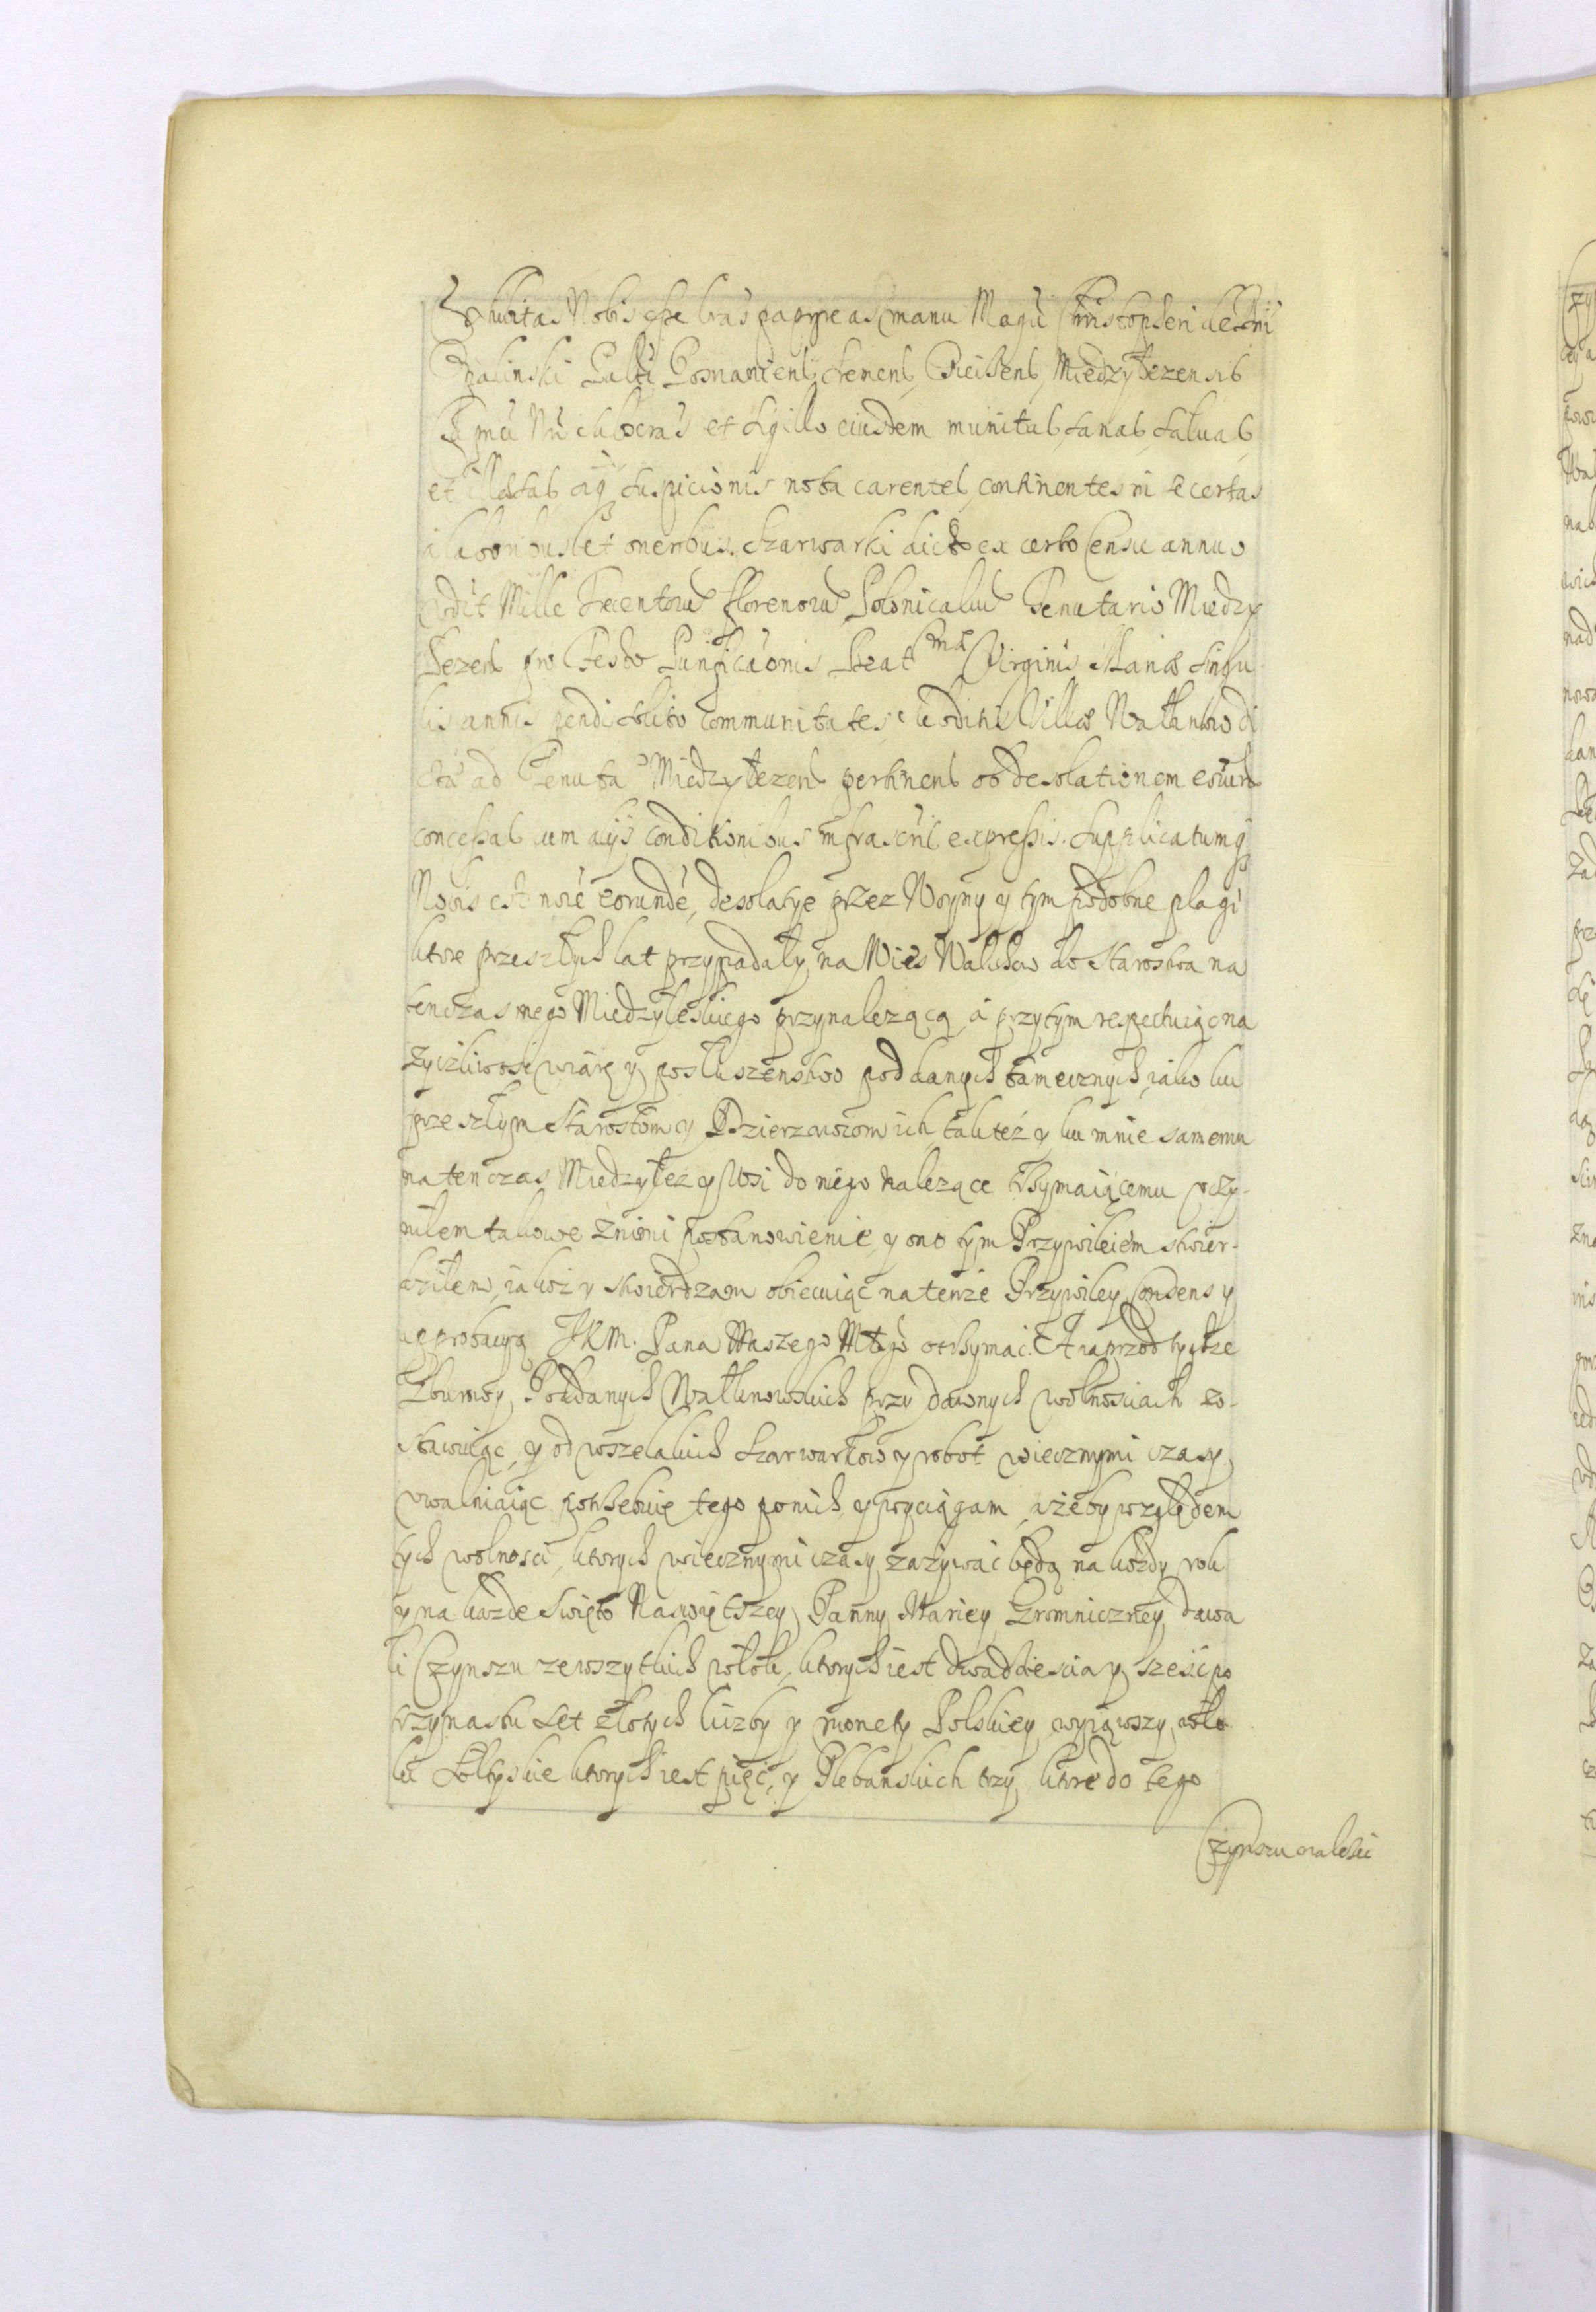 Exhibitas Nobis esse lrãs papyreas manu Magci Christopheri de Bnin
Opalinski Palti Posnaniens Sremens, Osiecens, Miedzyłezensis
Capnei Nri subscras et sigillo eiusdem munitas, sanas, salvas,
et illaesas oiq suspicionis nota carentes, continentes in se certas
a laboribus et oneribus Szarwarki dictis ex certo Censu annuo
Mille Trecentorũ florenorũ Polonicaliũ Tenutario Miedzy
łezens pro Festo Purificaonis Beat mæ Virginis Mariæ singu
lis annis pendi solito communitates Villæ
ad Tenutã Miedzyłezens pertinens ob desolationem eorum
concessas cum alijs conditionibus infrascris expressis. Supplicatumq
Nobis est noie eorundẽ, desolatye przez Woyny y tym podobne plagi
ktore przeszłych lat przypadały na Wieś do Starostwa na
tenczas mego Miedzyłeskiego przynalezącą, a przytym respectuiąc na
zyczliwość wiarę y posłuszenstwo poddanych tamecznych, iako ku
przeszłym Starostom y Dzierzawcom ich, tak też y ku mnie samemu
natenczas Miedzyłez y Wsi do niego nalezące trzymaiącemu vczy-
niłem takowe znimi postanowienie, y ono tym Przywileiem stwier-
dziłem, iakoż y stwierdzam obiecuiąc na tenże Przywiley Consens y
approbacyą JKM. Pana Naszego Młgo otrzymać. A naprzod tychże
Poddanych przy dawnych wolnościach zo-
stawuiąc, y od wszelakich Szarwarkow y robot wiecznymi czasy
vwalniaiąc potrzebuię tego ponich y wyciągam, ażeby względem
tych wolności, ktorych wiecznymi czasy zażywać będą na każdy rok
y na każde Swięto Naswiętszey Panny Mariey Gromniczney dawa
li Czynszu ze wszytkich włok, ktorych iest dwadzieścia y sześć po
trzynastu set złotych liczby y monety Polskiey wyiąwszy wło
ki Sołtyskie ktorych iest pięć, y Plebanskich trzy, ktore do tego
Czynszu nalezec